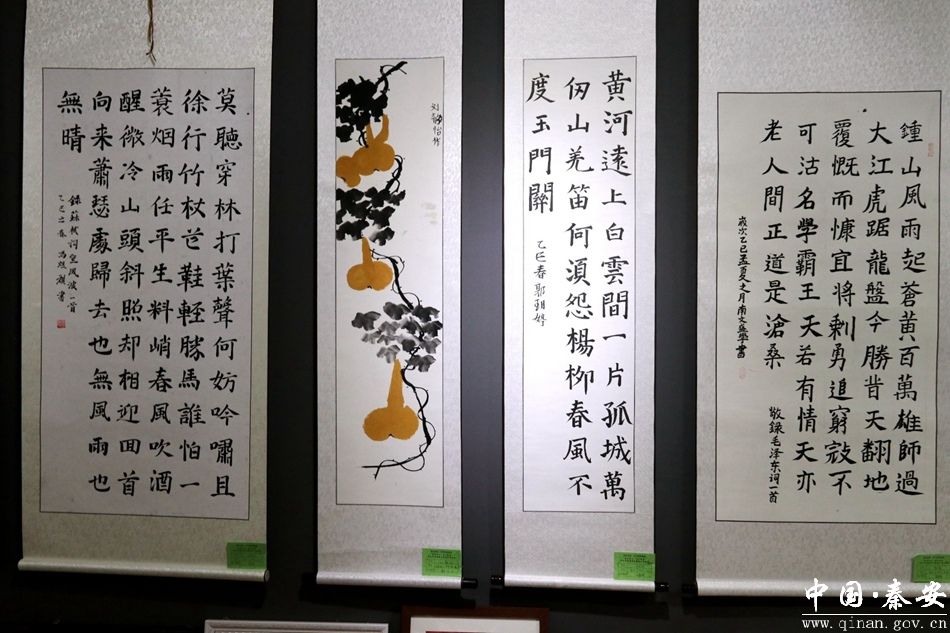 莫聽穿林打葉聲何妨吟嘯且
徐行竹杖芒鞋輕勝馬誰怕一
蓑烟雨任平生料峭春風吹酒
醒微冷山頭斜照却相迎回首
向来蕭瑟處歸去也無風雨也
無晴
錄蘇軾詞定風波一首
乙巳之春
黄河遠上白雲間一片孤城萬
仞山羌笛何須怨楊柳春風不
度玉門關
乙巳春郭朝婷
鍾山風雨起蒼黄百萬雄師過
大江虎踞龍盤今勝昔天翻地
覆慨而慷宜将剩勇追窮寇不
可沽名學霸王天若有情天亦
老人間正道是滄桑
敬錄毛泽东词一首
歲次乙巳孟夏之月
中国·秦安
www.qinan.gov.cn